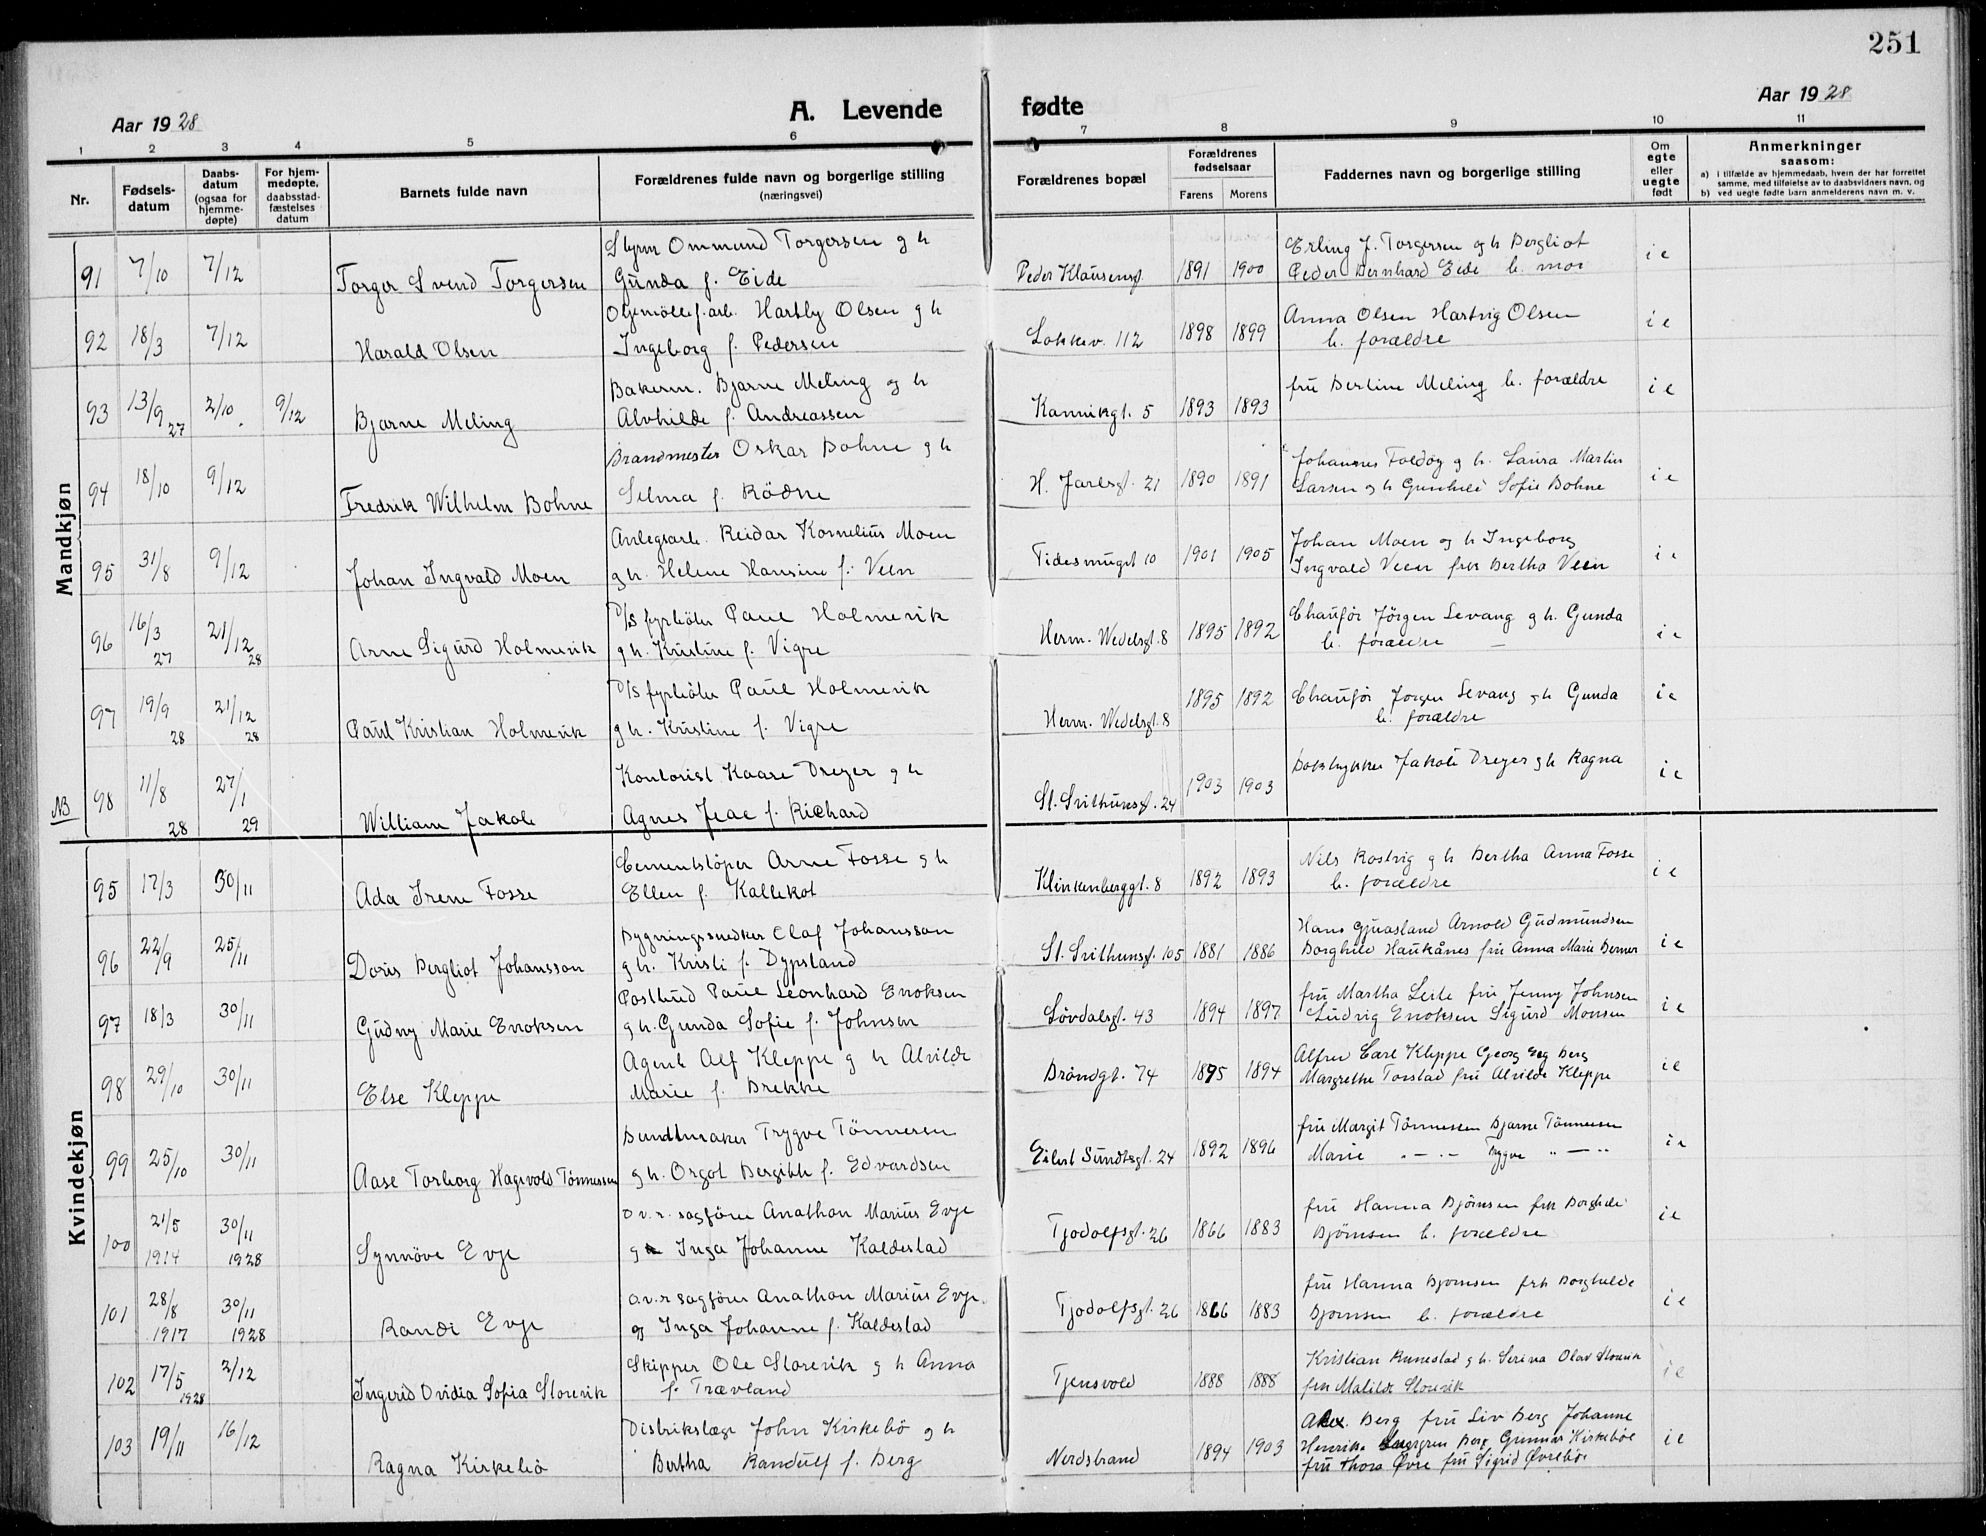 251
Aar 1928
A. Levende fødte
Aar 1928
1 2 3 4 5 6 7 8 9 10 11
Nr.
Fødsels-
datum
Daabs-
datum
(ogsaa for
hjemme-
døpte)
For hjem-
medøpte,
daabsstad-
fæstelses
datum
Barnets fulde navn
Forældrenes fulde navn og borgerlige stilling
(næringsvei)
Forældrenes bopæl
Forældrenes
fødselsaar
Farens Morens
Faddernes navn og borgerlige stilling
Om
egte
eller
uegte
født
Anmerkninger
saasom:
a) i tilfælde av hjemmedaab, hvem der har forrettet
samme, med tilføielse av to daabsvidners navn, og
b) ved uegte fødte barn anmelderens navn m. v.
Mandkjøn
91 7/10 7/12 Torger Svend Torgersen
Styrm Ommund Torgersen g h
Gunda f. Eide
Peder Klausensgt. 1891 1900
Erling J. Torgersen og h Bergliot
Peder Bernhard Eide b. mor
i e
92 18/3 7/12 Harald Olsen
Oljemøllef.arb. Hartby Olsen g h
Ingeborg f. Pedersen
Lokkev. 112 1898 1899
Anna Olsen Hartvig Olsen
b. forældre
i e
93 13/9 27 2/10 9/12 Bjarne Meling
Bakerm. Bjarne Meling og h
Alvhilde f. Andreassen
Kannikgt. 5 1893 1893
fru Bertine Meling b. forældre
i e
94 18/10 9/12 Fredrik Wilhelm Bohne
Brandmester Oskar Bohne g h
Selma f. Rödne
H. Jarlsgt. 21 1890 1891
Johannes Foldøy g h. Laura Martin
Larsen g h Gunhild Sofie Bohne
i e
95 31/8 9/12 Johan Ingvald Moen
Anlegsarb. Reidar Kornelius Moen
g h. Helene Hansine f. Veen
Tidesmugt 10 1901 1905
Johan Moen og h Ingeborg
Ingvald Veen frk Bertha Veen
i e
96 16/3 27 21/12 28 Arne Sigurd Holmevik
D/S fyrböter Paul Holmevik
g h. Kristine f. Vigre
Herm. Wedelsgt. 8 1895 1892
Chaufør Jørgen Levang g h. Gunda
b. forældre
i e
97 19/9 28 21/12 28 Paul Kristian Holmevik
D/S fyrböter Paul Holmevik
g h. Kristine f. Vigre
Herm. Wedelsgt. 8 1895 1892
Chaufør Jørgen Levang g h Gunda
b. forældre
i e
NB 98 11/8 28 27/1 29 William Jakob
Kontorist Kaare Dreyer g h
Agnes Jeae f. Richard
St. Svithunsgt. 24 1903 1903
Boktrykker Jakob Dreyer g h Ragna
i e
Kvindekjøn
95 17/3 30/11 Ada Irene Fosse
Cementstöper Arne Fosse g h
Ellen f. Kallekot
Klinkenberggt. 8 1892 1893
Nils Rostvig g h Bertha Anna Fosse
b. forældre
i e
96 22/9 25/11 Doris Bergliot Johansson
Bygningssnedker Olaf Johansson
g h. Kristi f. Dypsland
St. Svithunsgt. 105 1881 1886
Hans Arnold Gudmundsen
Borghild Haukånes fru Anna Marie Berner
i e
97 18/3 30/11 Gudny Marie Enoksen
Postbud Paul Leonhard Enoksen
g h. Gunda Sofie f. Johnsen
Lövdalsgt. 43 1894 1897
fru Martha Leite fru Jenny Johnsen
Ludvig Enoksen Sigurd Monsen
i e
98 29/10 30/11 Else Kleppe
Agent Alf Kleppe g h Alvilde
Marie f. Brekke
Bröndgt. 74 1895 1894
Alfred Carl Kleppe Georg Berg
Margrethe Torstad fru Alvilde Kleppe
i e
99 25/10 30/11 Aase Torborg Hagevold Tönnessen
Buntmaker Trygve Tönnesen
g h. Orgot Bergithe f. Edvardsen
Eilert Sundtsgt. 24 1892 1896
fru Margit Tönnessen Bjarne Tönnesen
Marie " — " Trygve " — "
i e
100 21/5 1914 30/11 1928 Synnöve Evje
O.v.r. sagförer Anathon Marius Evje
g Inga Johanne Kaldestad
Tjodolfsgt. 26 1866 1883
fru Hanna Bjørnsen frk Borghilde
Bjørnsen b. forældre
i e
101 28/8 1917 30/11 1928 Randi Evje
O.v.r sagförer Anathon Marius Evje.
og Inga Johanne f. Kaldestad
Tjodolfsgt. 26 1866 1883
fru Hanna Bjørnsen frk Borghilde
Bjørnsen b. forældre
i e
102 17/5 1928 2/12 Ingerid Ovidia Sofia Storevik
Skipper Ole Storevik g h Anna
f. Trævland
Tjensvold 1888 1888
Kristian Runestad g h. Serina Olav Storevik
frk Matilde Storevik
i e
103 19/11 16/12 Ragna Kirkebö
Distrikslæge John Kirkebö g h
Bertha Randulf f. Berg
Nerdstrand 1894 1903
Alex. Berg fru Liv Berg Johanne
Henrikke Berg Gunnar Kirkebøe
fru Thora Øvre fru Sigrid Øvrebøe
i e